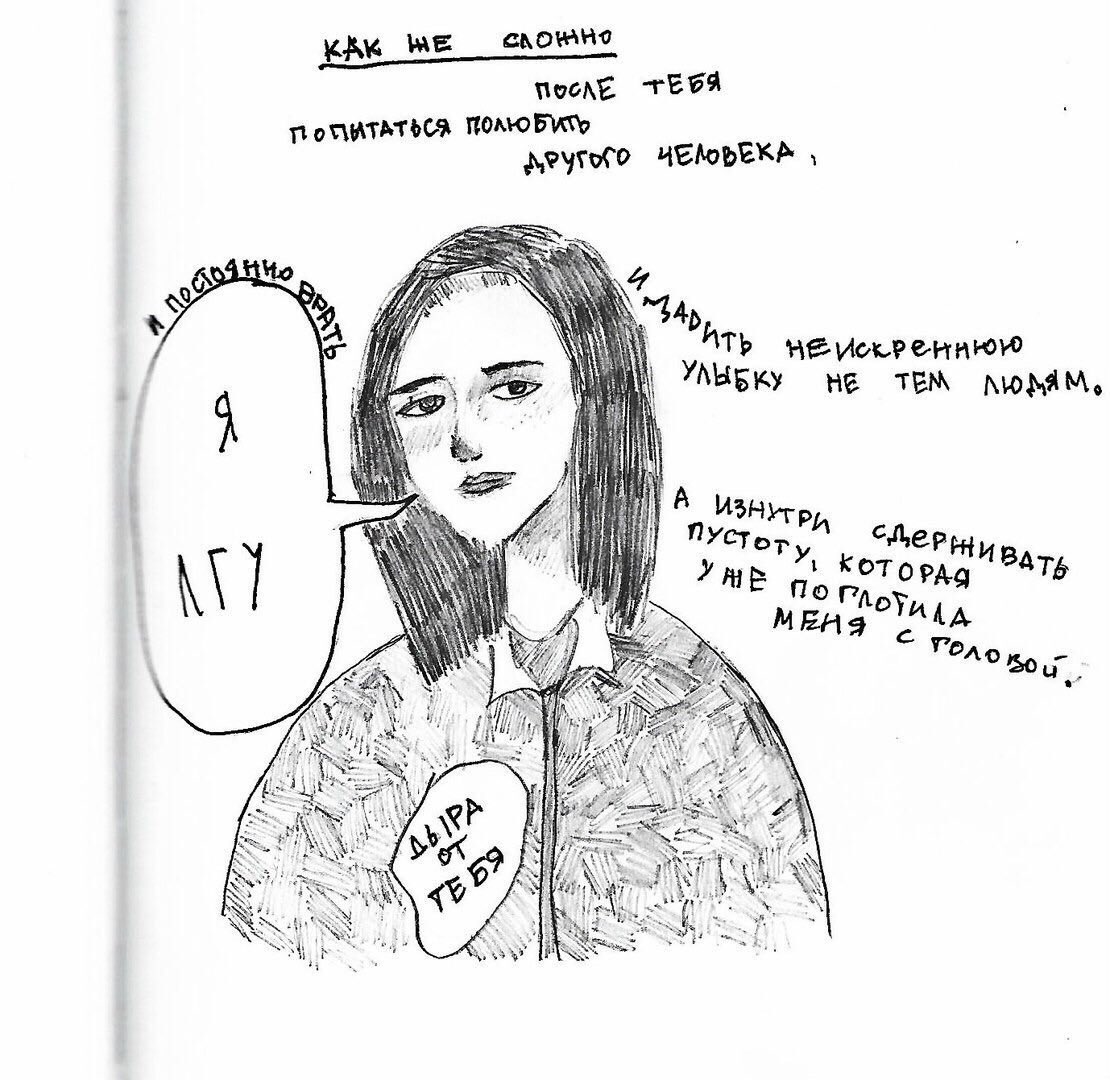 КАК ЖЕ СЛОЖНО
ПОСЛЕ ТЕБЯ
ПОПИТАТЬСЯ ПОЛЮБИТЬ
ДРУГОГО ЧЕЛОВЕКА,
И ПОСТОЯННО ВРАТЬ
Я
ЛГУ
И ДАДИТЬ НЕИСКРЕННЮЮ
УЛЫБКУ НЕ ТЕМ ЛЮДЯМ.
А ИЗНУТРИ СДЕРЖИВАТЬ
ПУСТОТУ, КОТОРАЯ
УЖЕ ПОГЛОТИЛА
МЕНЯ С ГОЛОВОЙ.
ДЫРА
ОТ
ТЕБЯ